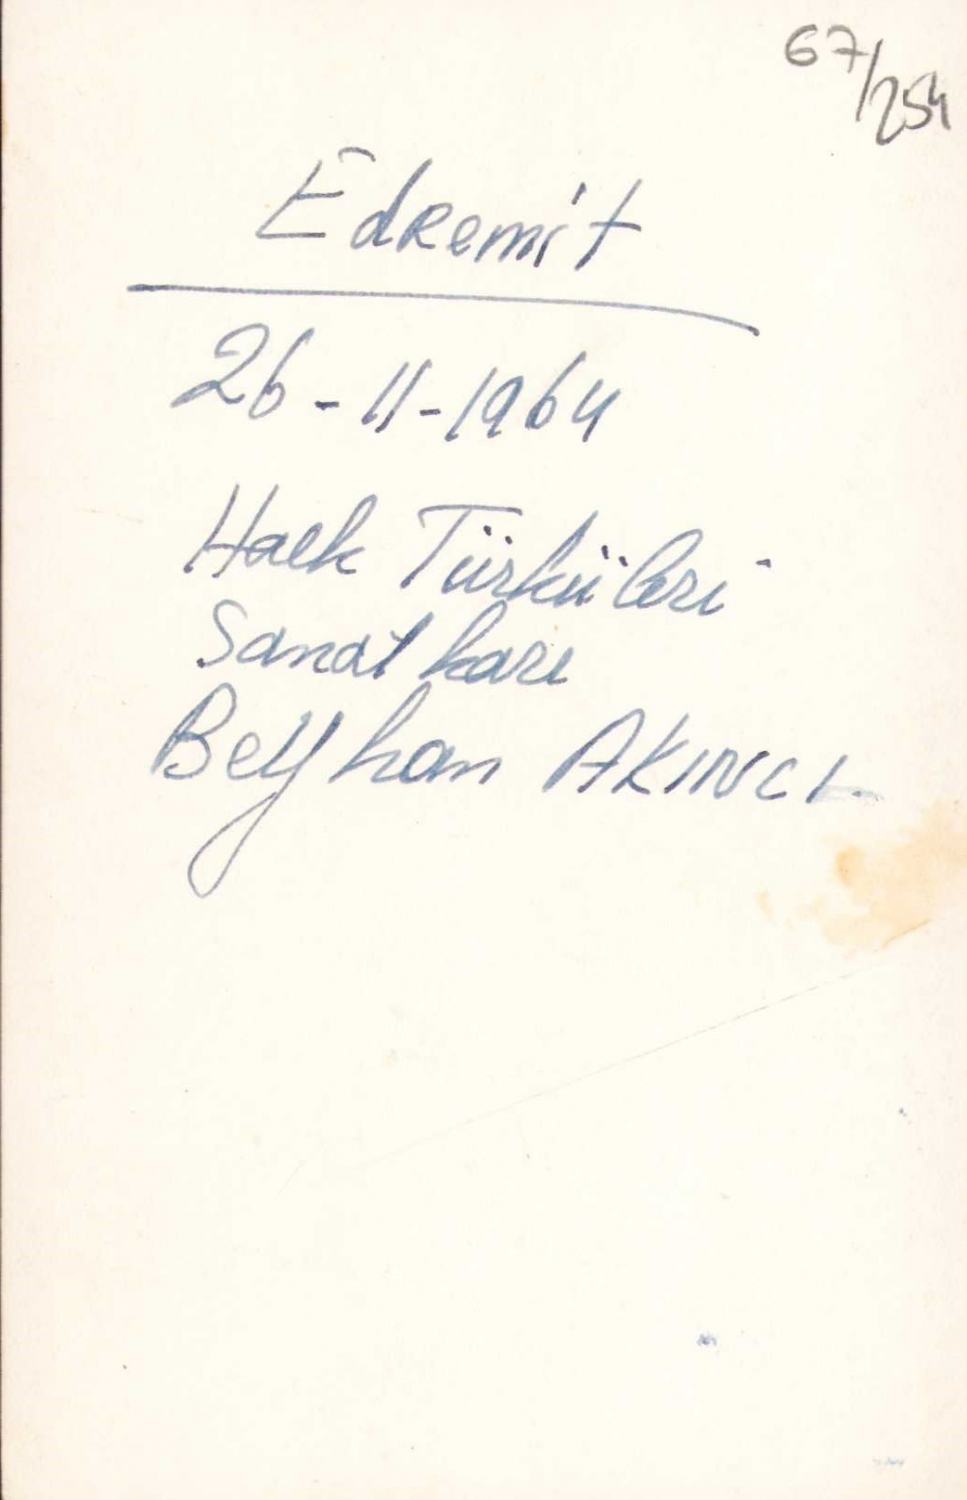 67/254
Edremit
26-11-1964
Halk Türküleri
Sanatkarı
Beyhan AKINCI.